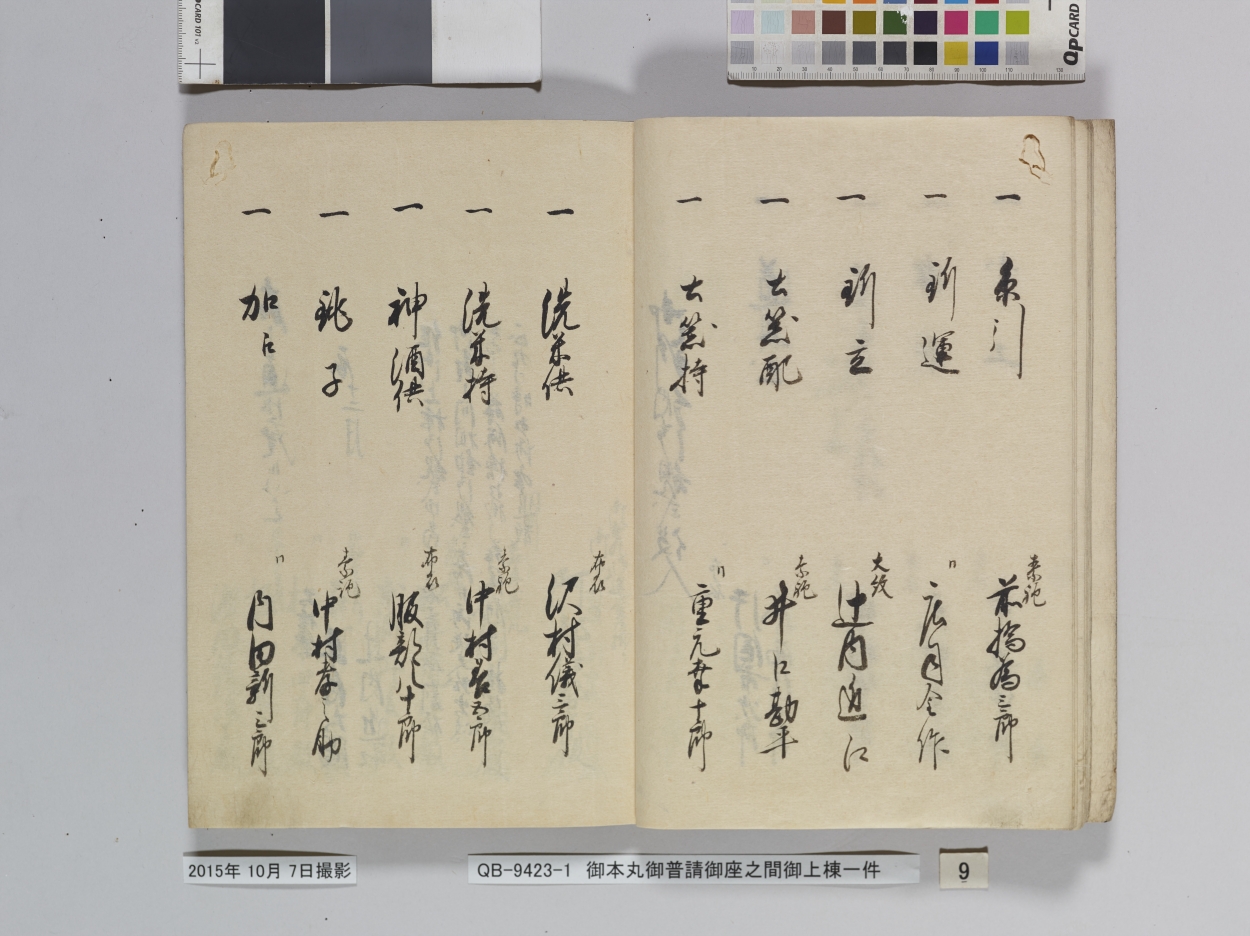 一 糸引 素袍 前橋為三郎
一 釿運 〃 広月今作
一 釿立 大紋 辻内近江
一 土器配 素袍 井口勘平
一 土器持 〃 重元幸十郎
一 洗米供 布衣 沢村儀三郎
一 洗米持 素袍 中村善五郎
一 神酒供 布衣 服部八十郎
一 銚子 素袍 中村孝之助
一 加 〃 内田新三郎
2015年 10月 7日撮影
QB-9423-1 御本丸御普請御座之間御上棟一件
9
QpCARD
QpCARD 101 v3